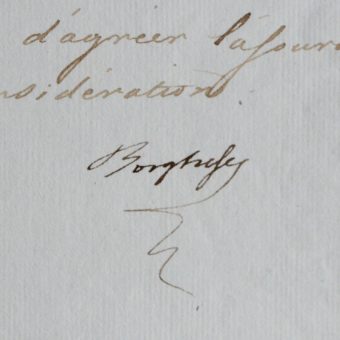 d'agréer l'assur
nsidération
Borghese